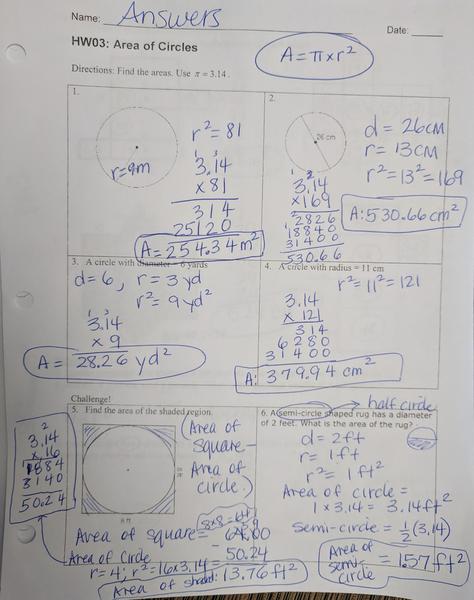 Name: Answers
Date:
HW03: Area of Circles
A = π x r²
Directions: Find the areas. Use π = 3.14.
1.
r=9m
r² = 81
3.14
x 81
314
25120
A = 254.34 m²
2.
26 cm
d = 26cm
r = 13cm
r² = 13² = 169
3.14
x 169
2826
18840
31400
530.66
A: 530.66 cm²
3. A circle with diameter = 6 yards
d = 6, r = 3 yd
r² = 9 yd²
3.14
x 9
A = 28.26 yd²
4. A circle with radius = 11 cm
r² = 11² = 121
3.14
x 121
314
6280
31400
A: 379.94 cm²
Challenge!
5. Find the area of the shaded region.
(Area of
square –
Area of
circle)
3.14
x 16
1884
3140
50.24
8 ft
8x8=64
Area of square = 64.00
Area of Circle 50.24
r = 4; r² = 16 x 3.14
Area of shaded: 13.76 ft²
half circle
6. A semi-circle shaped rug has a diameter
of 2 feet. What is the area of the rug?
d = 2ft
r = 1ft
r² = 1ft²
Area of circle =
1 x 3.14 = 3.14 ft²
Semi-circle = ½(3.14)
Area of semi-circle = 1.57 ft²